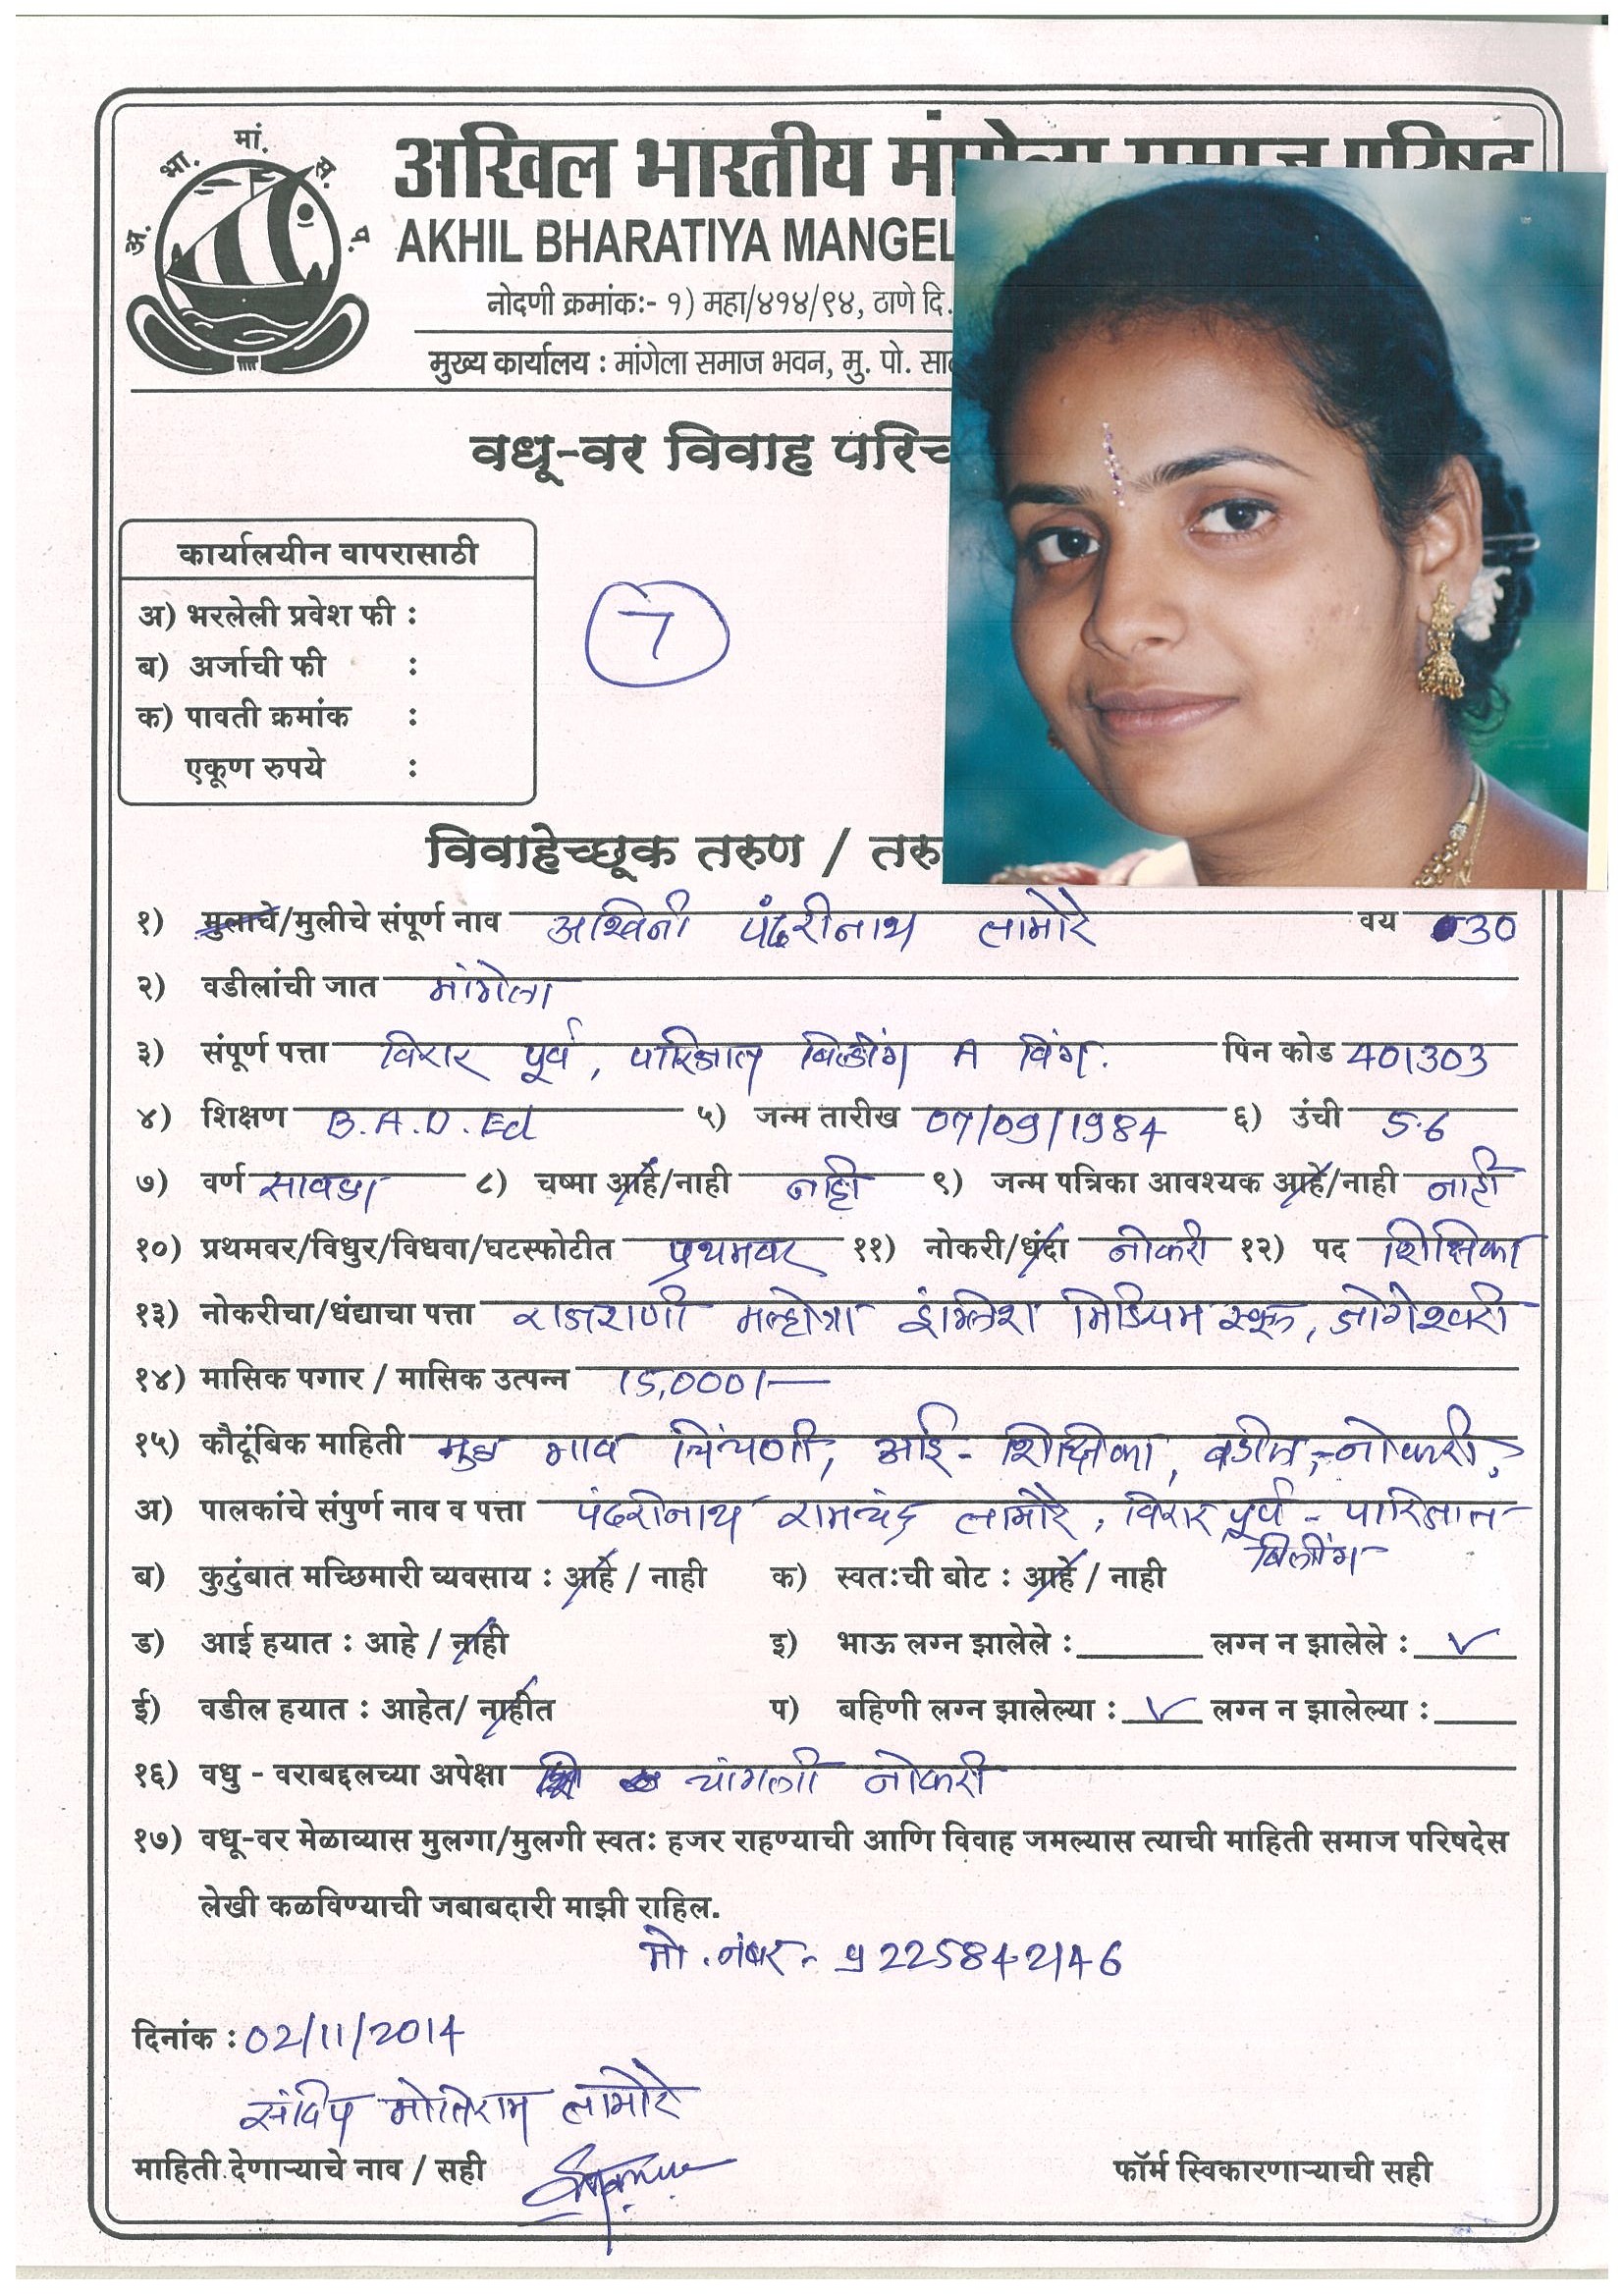 अ. भा. मां. स. प.
अखिल भारतीय मांगेला समाज परिषद
AKHIL BHARATIYA MANGEL
नोदणी क्रमांकः- १) महा/४१४/९४, ठाणे दि.
मुख्य कार्यालय : मांगेला समाज भवन, मु. पो.
वधू-वर विवाह
कार्यालयीन वापरासाठी
अ) भरलेली प्रवेश फी :
ब) अर्जाची फी :
क) पावती क्रमांक :
एकूण रुपये :
7
विवाहेच्छूक तरुण /
१) मुलाचे/मुलीचे संपूर्ण नाव अश्विनी पंढरीनाथ तामोरे वय 30
२) वडीलांची जात मांगेला
३) संपूर्ण पत्ता विरार पूर्व, पारिजात बिल्डींग A विंग. पिन कोड 401303
४) शिक्षण B.A.D.Ed ५) जन्म तारीख 07/09/1984 ६) उंची 5.6
७) वर्ण सावळा ८) चष्मा आहे/नाही नाही ९) जन्म पत्रिका आवश्यक आहे/नाही नाही
१०) प्रथमवर/विधुर/विधवा/घटस्फोटीत प्रथमवर ११) नोकरी/धंदा नोकरी १२) पद शिक्षिका
१३) नोकरीचा/धंद्याचा पत्ता राजराणी मल्होत्रा इंग्लिश मिडियम स्कूल, जोगेश्वरी
१४) मासिक पगार / मासिक उत्पन्न 15,000/-
१५) कौटूंबिक माहिती मुळ गाव चिंचणी, आई - शिक्षिका, वडील - नोकरी,
अ) पालकांचे संपुर्ण नाव व पत्ता पंढरीनाथ रामचंद्र तामोरे, विरार पूर्व - पारिजात
बिल्डींग
ब) कुटुंबात मच्छिमारी व्यवसाय : आहे / नाही क) स्वतःची बोट : आहे / नाही
ड) आई हयात : आहे / नाही इ) भाऊ लग्न झालेले : लग्न न झालेले : ✓
ई) वडील हयात : आहेत/ नाहीत प) बहिणी लग्न झालेल्या : ✓ लग्न न झालेल्या :
१६) वधु - वराबद्दलच्या अपेक्षा चांगली नोकरी
१७) वधू-वर मेळाव्यास मुलगा/मुलगी स्वतः हजर राहण्याची आणि विवाह जमल्यास त्याची माहिती समाज परिषदेस
लेखी कळविण्याची जबाबदारी माझी राहिल.
मो. नंबर - 9225842146
दिनांक : 02/11/2014
संदिप मोतिराम तामोरे
माहिती देणाऱ्याचे नाव / सही फॉर्म स्विकारणाऱ्याची सही